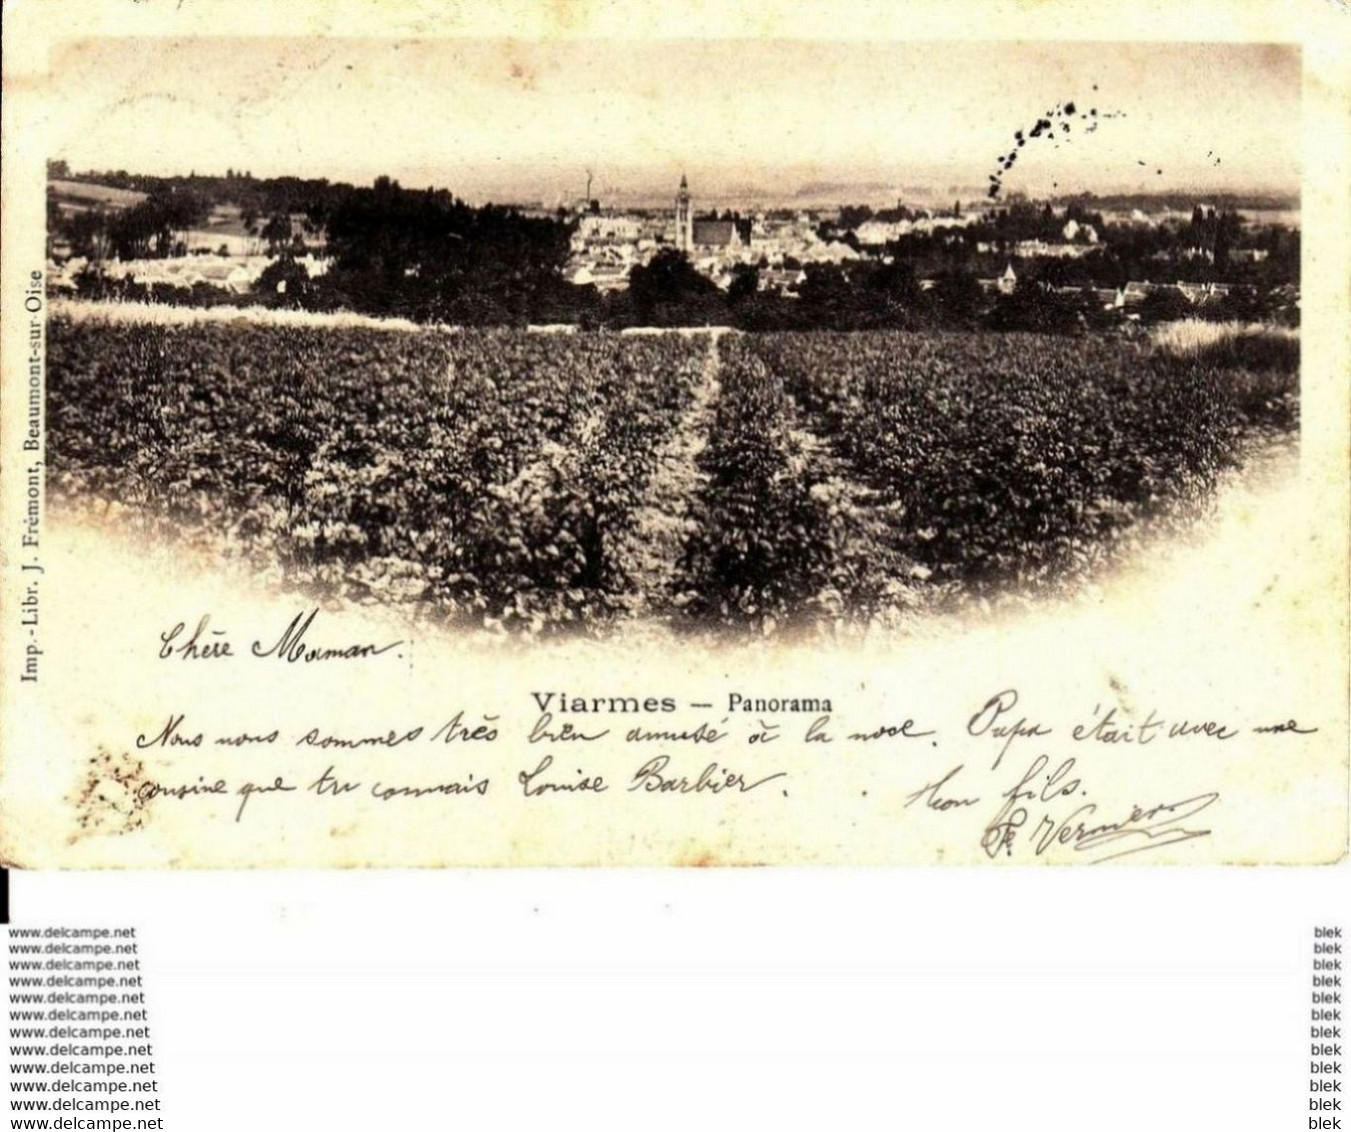 Imp.-Libr. J. Frémont, Beaumont-sur-Oise
Chère Maman.
Viarmes — Panorama
Nous nous sommes très bien amusé à la noce. Papa était avec une
cousine que tu connais Louise Barbier.
Ton fils.
Vermier
www.delcampe.net
www.delcampe.net
www.delcampe.net
www.delcampe.net
www.delcampe.net
www.delcampe.net
www.delcampe.net
www.delcampe.net
www.delcampe.net
www.delcampe.net
www.delcampe.net
www.delcampe.net
blek
blek
blek
blek
blek
blek
blek
blek
blek
blek
blek
blek